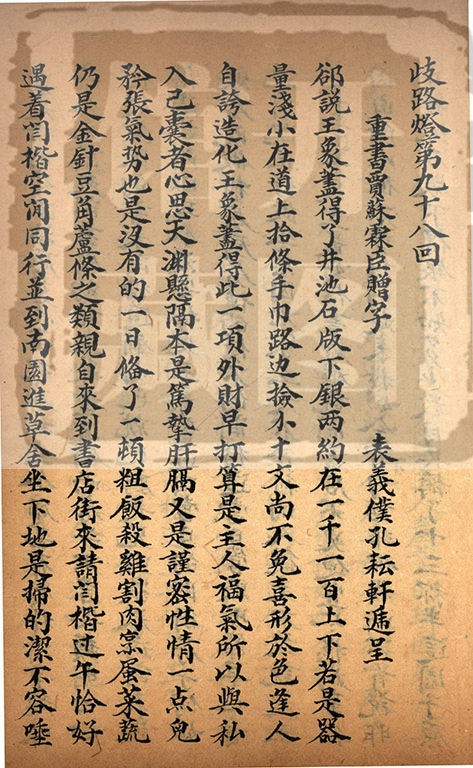 歧路燈第九十八回
重書賈蘇霖臣贈字 表義僕孔耘軒遞呈
郤説王象藎得了井池石版下銀两約在一千一百上下若是器
量淺小在道上拾條手巾路边撿個十文尚不免喜形於色逢人
自誇造化王象藎得此一項外財早打算是主人福氣所以與私
入己囊者心思天渊懸隔本是篤摯肝膈又是謹密性情一点皃
矜張氣势也是没有的一日俻了一頓粗飯殺雞割肉烹蛋菜蔬
仍是金針豆角蘆條之類親自來到書店街來請闫楷过午恰好
遇着闫楷空闲同行並到南園進草舍坐下地是掃的潔不容唾